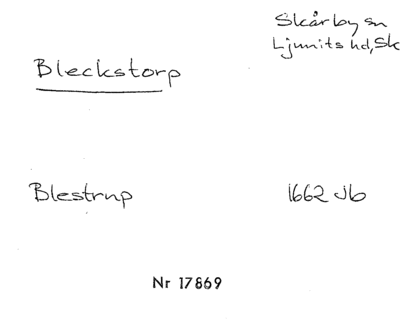 Skårby sn
Ljunits hd, Sk
Bleckstorp
Blestrup 1662 Jb
Nr 17869